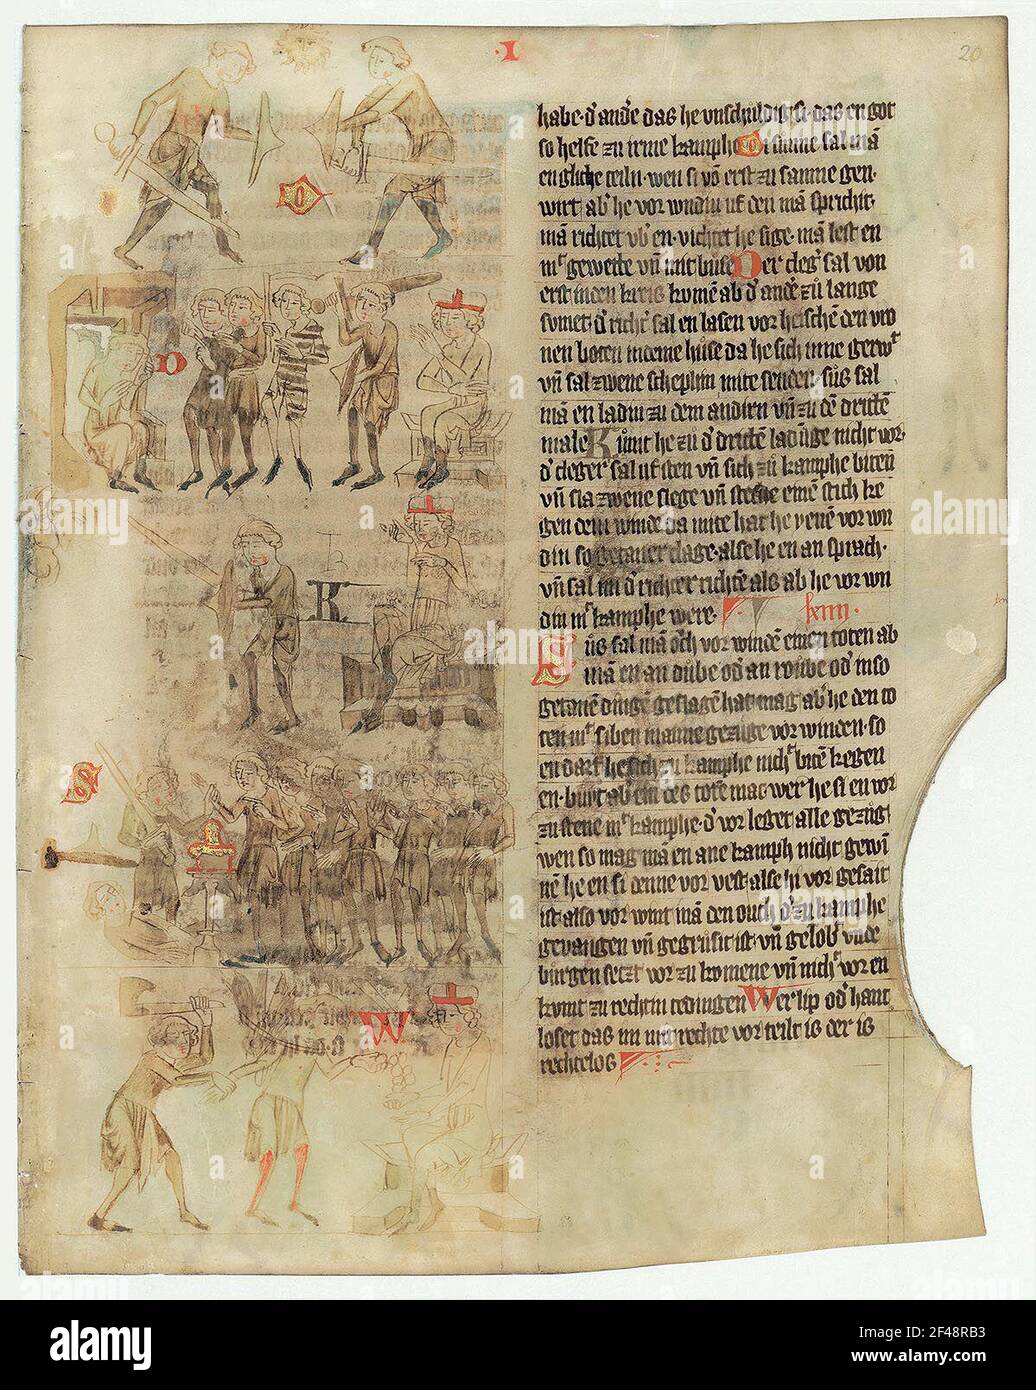 ·I·
20
habe· d' and'e das he vnschuldig si· das en got
so helfe zu irme kamphe Di sunne sal mā
en gliche teiln· wen si vō erst zu samne gen·
wirt ab' he vor wndin uf den mā sprichit·
mā richtet vb' en· vichtet he sige· mā lest en
mit gewette vn̄ mit buse Der cleg' sal von
erst in den kreis komē ab d' and'e zū lange
sumet· d' richt' sal en lasen vor heischē den vro
nen boten in deme huse da he sich inne gerwt
vn̄ sal zwene schephin mite senden· sus sal
mā en ladin zu dem andirn vn̄ zu dē drittē
male Kumt he zu d' drittē ladūge nicht vor·
d' cleger sal uf sten vn̄ sich zu kamphe bitēn
vn̄ sla zwene slege vn̄ steche einē stich ke
gen dem winde da mite hat he yenē vor wn
din so getaner clage· alse he en an sprach·
vn̄ sal im d' richter richtē als ab he vor wn
din mit kamphe were·
lxiiii·
D
D
K
S
W
Sus sal mā och vor windē einen toten ab
mā en an dube od' an roube od' in so
getanē dingē geslagē hat· mag ab' he den to
ten mit siben mannē gezuge vor winden· so
en darf he sich zu kamphe nicht bitē kegen
en· but ab' ein des totē mac· wer he si en vor
zu stene mit kamphe· d' vor leget alle gezug
wen so mag mā en ane kamph nicht gewī
nē he en si denne vor vest· alse hi vor gesait
ist· also vor wint mā den ouch d' zu kamphe
gevangen vn̄ gegrusit ist· vn̄ gelob' vnde
burgen setzt vor zu komene vn̄ nicht vor en
kumt zu rechtin tedingen Wer lip od' hant
loset das im mit rechte vor teilt is der is
rechtelos
alamy
Image ID: 2F48RB3
www.alamy.com